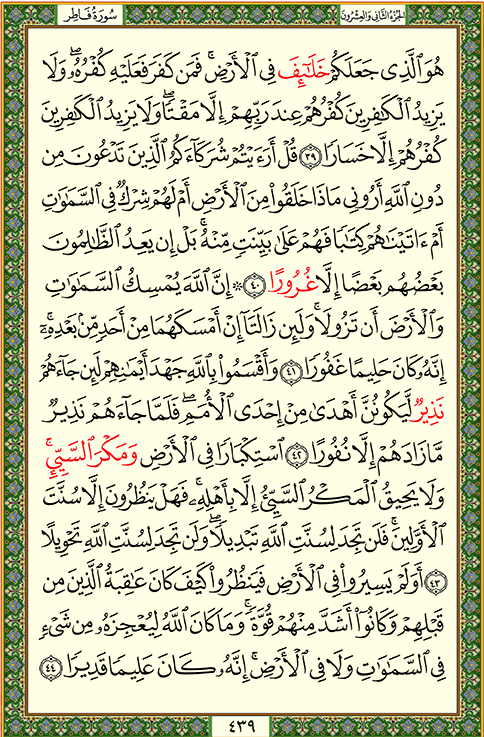 سُورَةُ فَاطِرٍ
الجُزْءُ الثَّانِي وَالعِشْرُونَ
هُوَ ٱلَّذِى جَعَلَكُمْ خَلَٰٓئِفَ فِى ٱلْأَرْضِ ۚ فَمَن كَفَرَ فَعَلَيْهِ كُفْرُهُۥ ۖ وَلَا
يَزِيدُ ٱلْكَٰفِرِينَ كُفْرُهُمْ عِندَ رَبِّهِمْ إِلَّا مَقْتًا ۖ وَلَا يَزِيدُ ٱلْكَٰفِرِينَ
كُفْرُهُمْ إِلَّا خَسَارًا ٣٩ قُلْ أَرَءَيْتُمْ شُرَكَآءَكُمُ ٱلَّذِينَ تَدْعُونَ مِن
دُونِ ٱللَّهِ أَرُونِى مَاذَا خَلَقُوا۟ مِنَ ٱلْأَرْضِ أَمْ لَهُمْ شِرْكٌ فِى ٱلسَّمَٰوَٰتِ
أَمْ ءَاتَيْنَٰهُمْ كِتَٰبًا فَهُمْ عَلَىٰ بَيِّنَتٍ مِّنْهُ ۚ بَلْ إِن يَعِدُ ٱلظَّٰلِمُونَ
بَعْضُهُم بَعْضًا إِلَّا غُرُورًا ٤٠ ۞ إِنَّ ٱللَّهَ يُمْسِكُ ٱلسَّمَٰوَٰتِ
وَٱلْأَرْضَ أَن تَزُولَا ۚ وَلَئِن زَالَتَآ إِنْ أَمْسَكَهُمَا مِنْ أَحَدٍ مِّنۢ بَعْدِهِۦٓ ۚ
إِنَّهُۥ كَانَ حَلِيمًا غَفُورًا ٤١ وَأَقْسَمُوا۟ بِٱللَّهِ جَهْدَ أَيْمَٰنِهِمْ لَئِن جَآءَهُمْ
نَذِيرٌ لَّيَكُونُنَّ أَهْدَىٰ مِنْ إِحْدَى ٱلْأُمَمِ ۖ فَلَمَّا جَآءَهُمْ نَذِيرٌ
مَّا زَادَهُمْ إِلَّا نُفُورًا ٤٢ ٱسْتِكْبَارًا فِى ٱلْأَرْضِ وَمَكْرَ ٱلسَّيِّئِ ۚ
وَلَا يَحِيقُ ٱلْمَكْرُ ٱلسَّيِّئُ إِلَّا بِأَهْلِهِۦ ۚ فَهَلْ يَنظُرُونَ إِلَّا سُنَّتَ
ٱلْأَوَّلِينَ ۚ فَلَن تَجِدَ لِسُنَّتِ ٱللَّهِ تَبْدِيلًا ۖ وَلَن تَجِدَ لِسُنَّتِ ٱللَّهِ تَحْوِيلًا
٤٣ أَوَلَمْ يَسِيرُوا۟ فِى ٱلْأَرْضِ فَيَنظُرُوا۟ كَيْفَ كَانَ عَٰقِبَةُ ٱلَّذِينَ مِن
قَبْلِهِمْ وَكَانُوٓا۟ أَشَدَّ مِنْهُمْ قُوَّةً ۚ وَمَا كَانَ ٱللَّهُ لِيُعْجِزَهُۥ مِن شَىْءٍ
فِى ٱلسَّمَٰوَٰتِ وَلَا فِى ٱلْأَرْضِ ۚ إِنَّهُۥ كَانَ عَلِيمًا قَدِيرًا ٤٤
٤٣٩